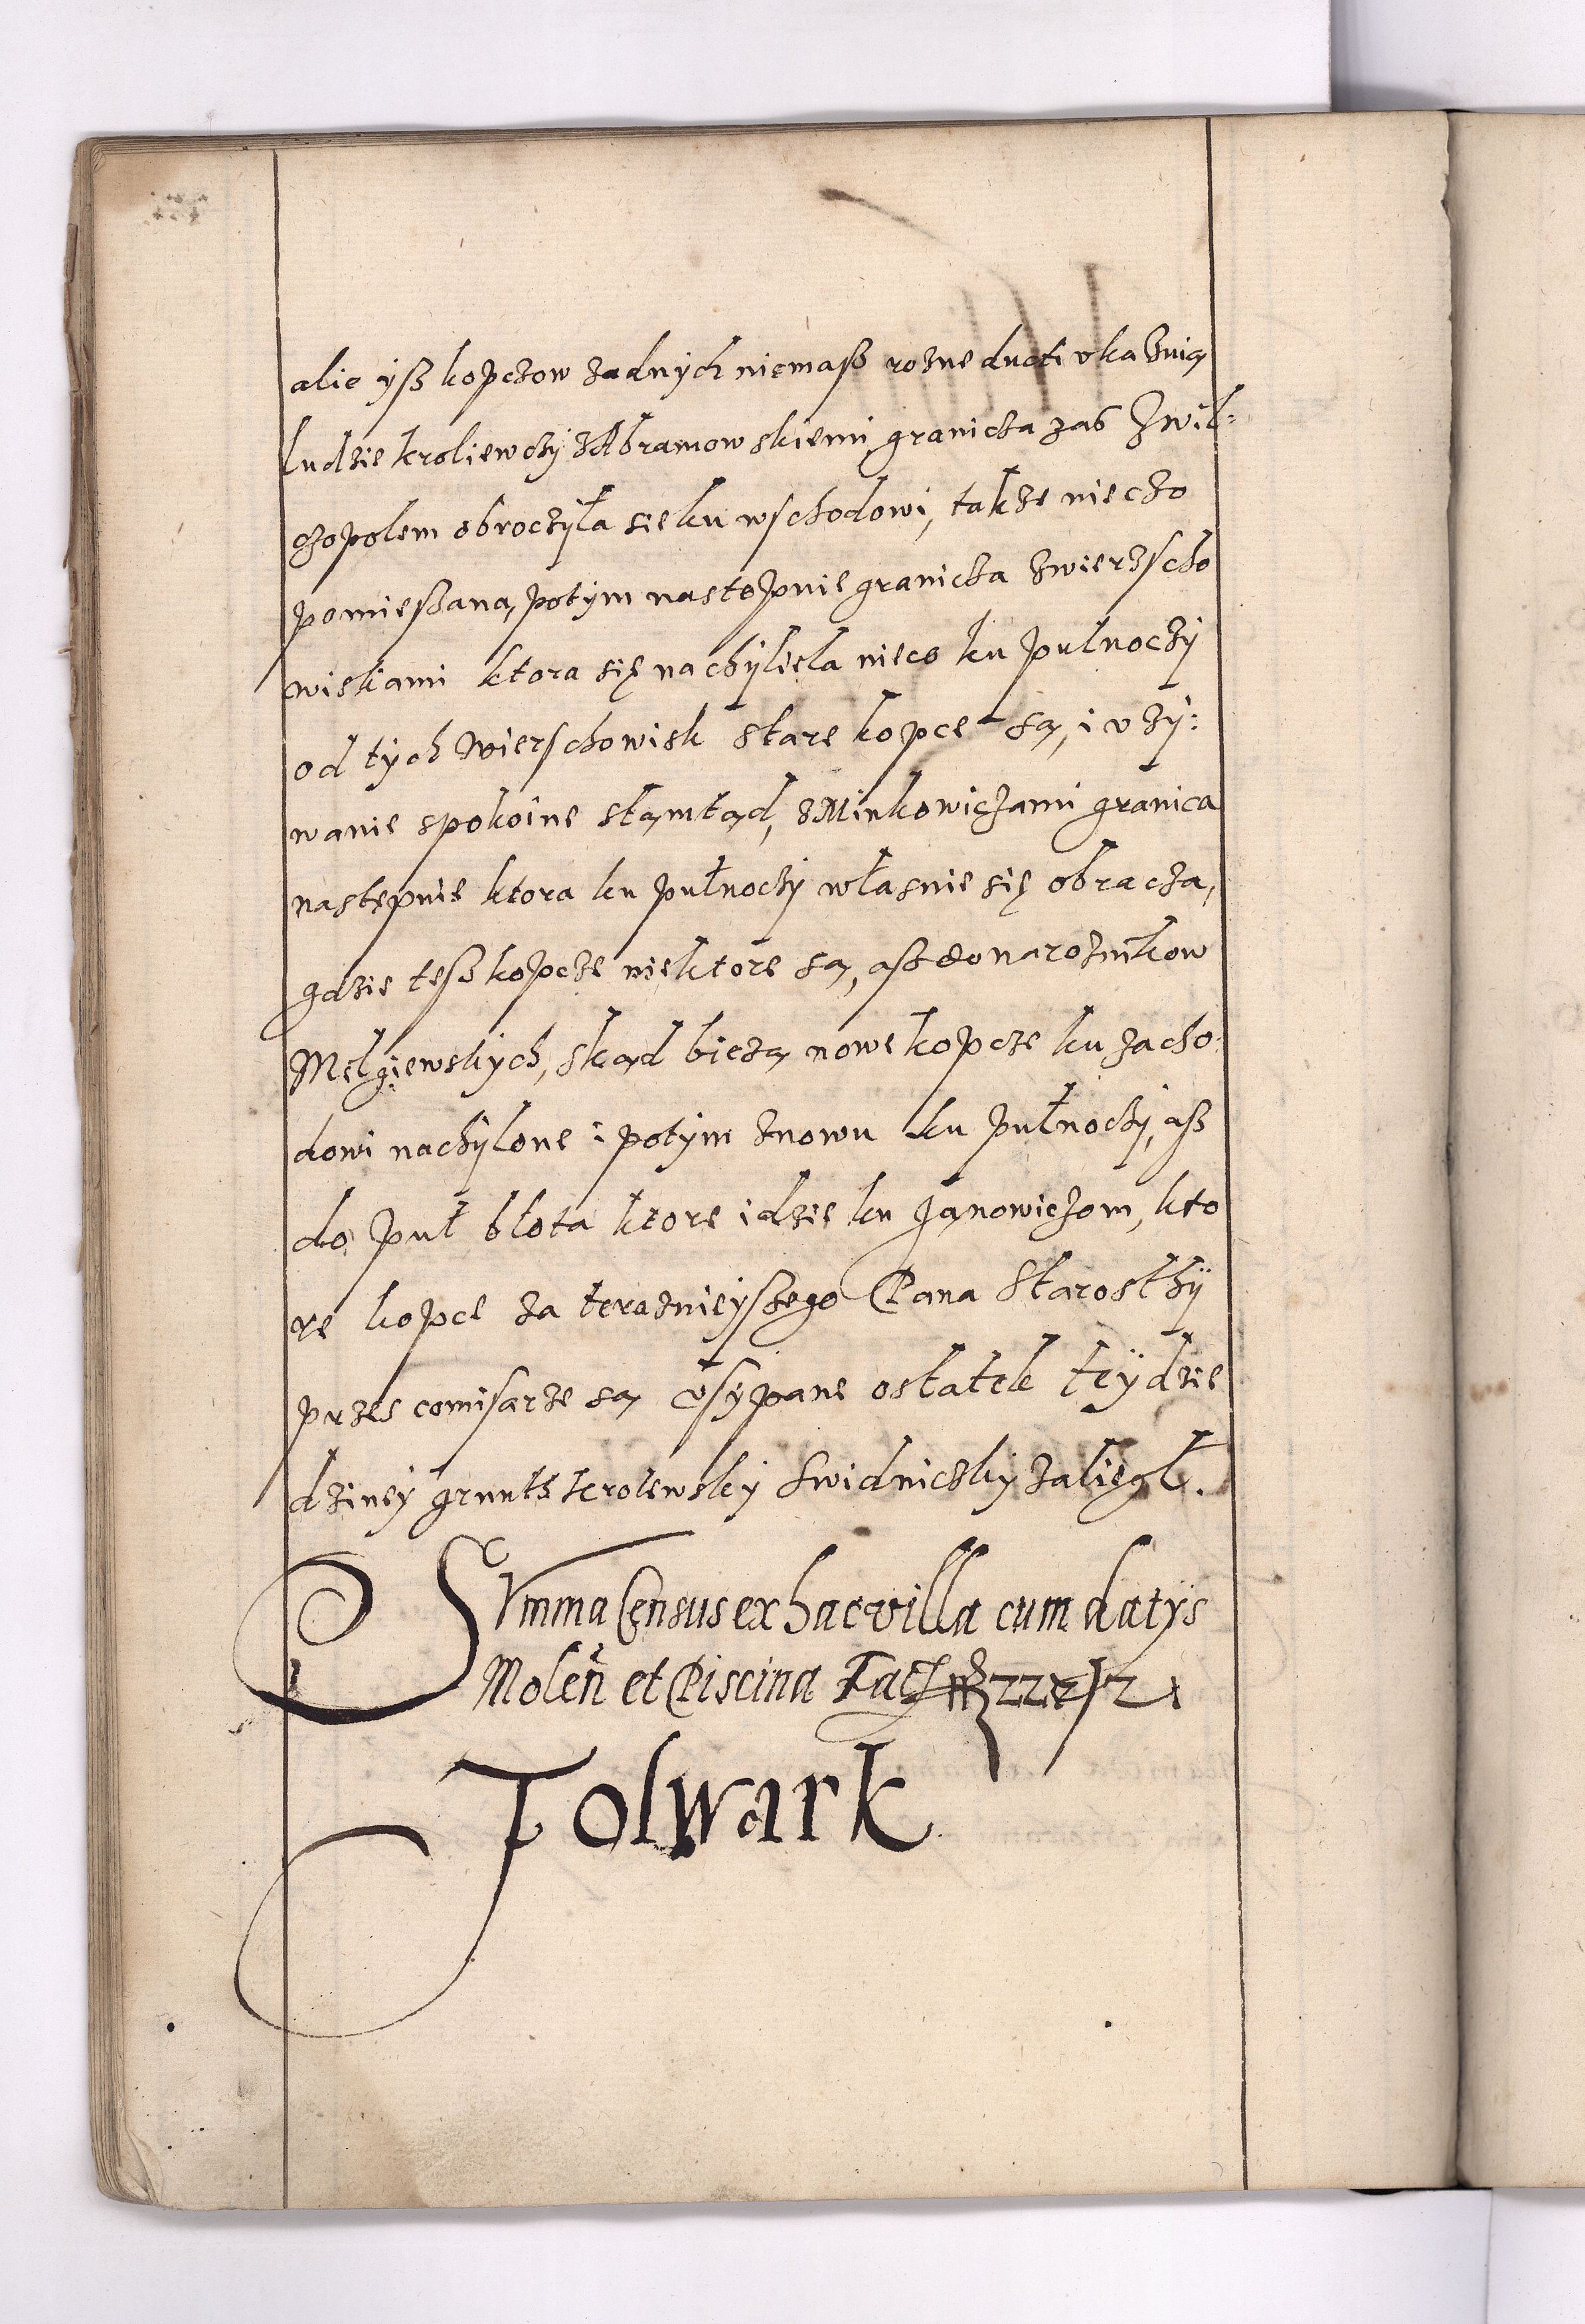 alie ÿsz kopczow zadnÿch niemasz rozne ducti vkazuią
ludzie kroliewczÿ z Abramowskiemi, graniczą zas z Wil:
czopolem obroczÿła sie ku wschodowi, takze nieczo
pomieszana, potÿm nastopuie granicza z wierzscho
wiskami ktora się nachÿlieła nieco ku pułnoczÿ
od tÿch wierschowisk stare kopce są, i vzÿ:
wanie spokoine stąmtąd, z Minkowiczami granica
nastepuie ktora ku pułnoczÿ własnie się obracza,
gdzie tesz kopcze niektore są, asz do naroznikow
Melgiewskÿch, skąd bieżą nowe kopcze ku zacho:
dowi nachÿlone i potÿm znowu ku pułnoczÿ, asz
do puł błota ktore idzie ku Janowiczom, kto
re kopce za teraznieÿszego Pana Starosthÿ
przes comisarze są vsÿpane ostatek teÿ dzie
dzineÿ grunts krolewskÿ Swidniczkÿ zaliegł.
Summa Census ex hac villa cum datÿs
Molen et Piscina Facit
Folwark